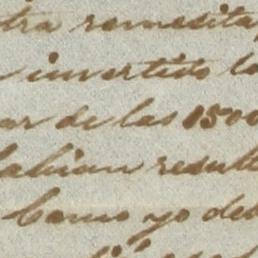 tra remesita
invertido lo
ar de las 1500
habian result
Como yo deb